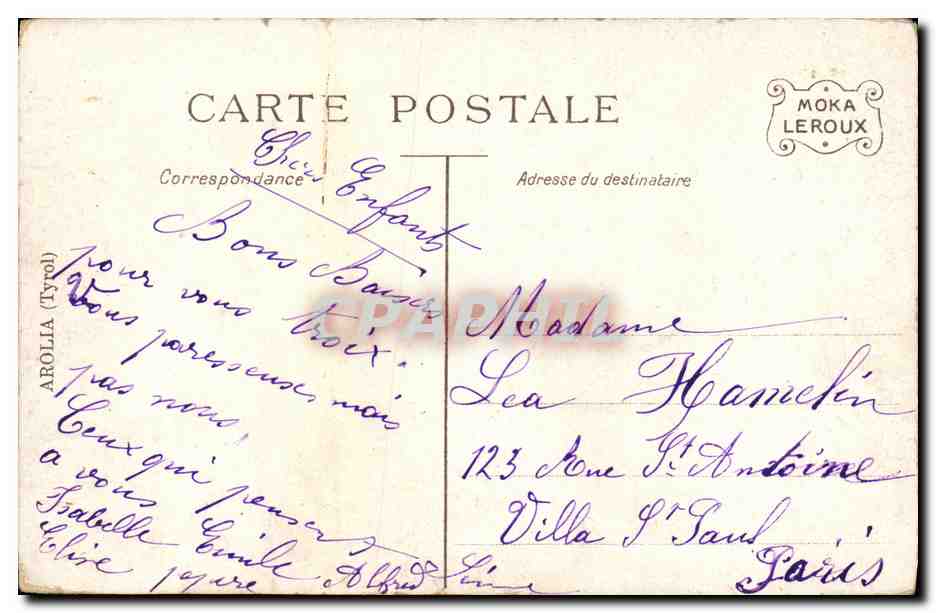 CARTE POSTALE
MOKA
LEROUX
Correspondance
Adresse du destinataire
AROLIA (Tyrol)
Chers Enfants
Bons Baisers
pour vous trois.
Vous paresseuses, mais
pas nous!
Ceux qui pensent
a vous
Isabelle Emile Alfred
Elise
CPAPHIL
Madame
Lea Hamelin
123 Rue St. Antoine
Villa St Paul
Paris
Seine